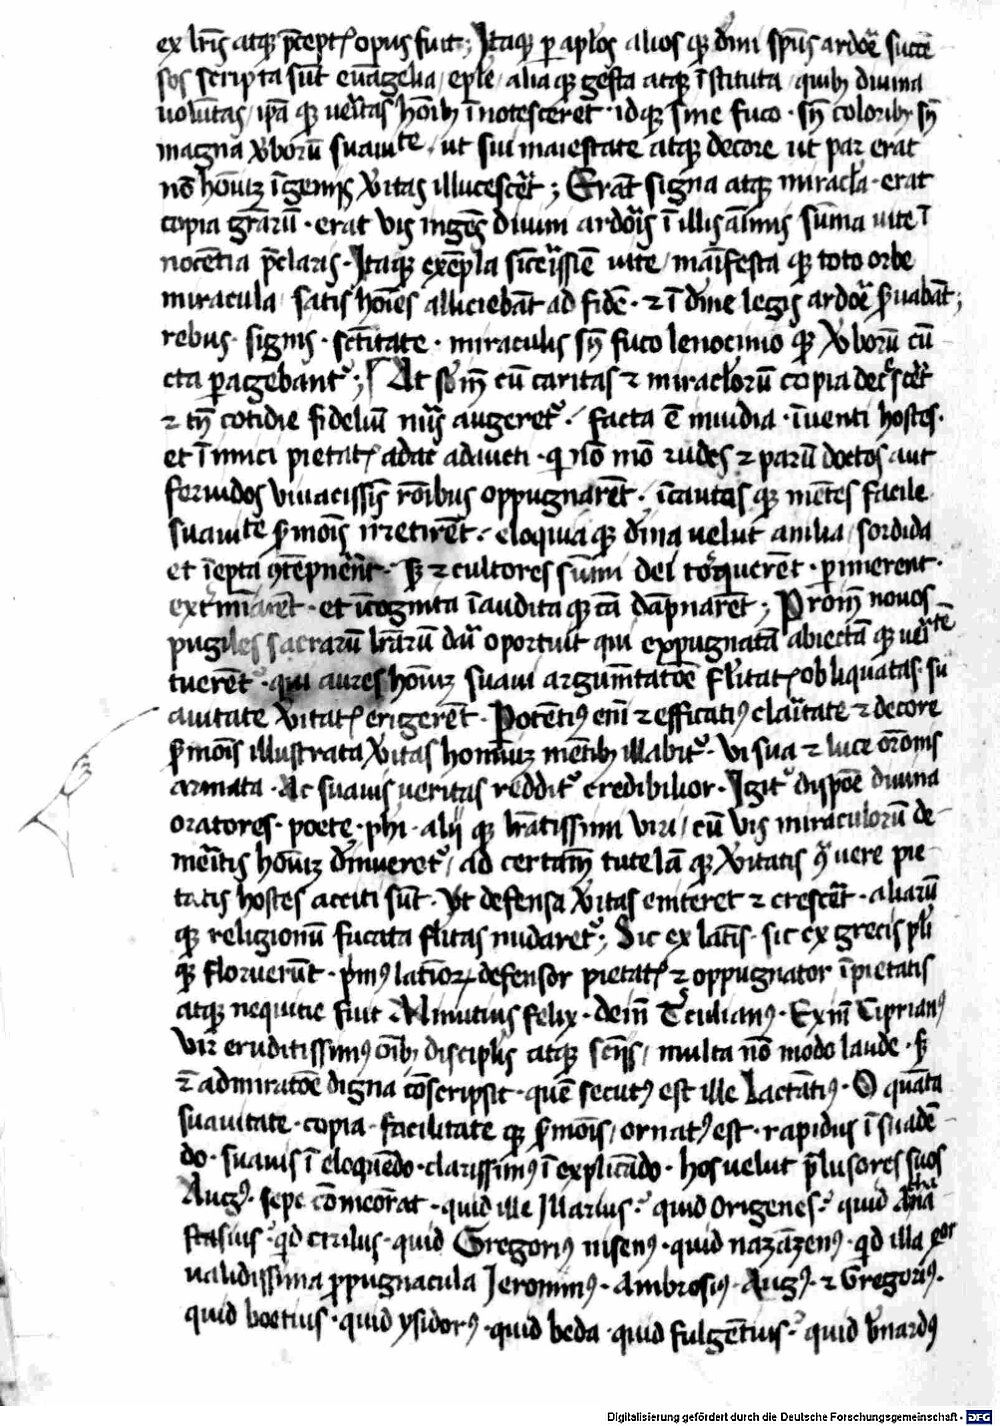 ex lr̄is atqꝫ p̄ceptꝭ opus fuit; Itaqꝫ ꝑ aplos alios qꝫ diui sp̄us ardoē succē
sos scripta sūt euāgelia / ep̄le / alia qꝫ gesta atqꝫ īstituta / quibꝫ diuina
uolūtas / ip̄a qꝫ ueritas hōībꝫ īnotesceret · idqꝫ sine fuco · sn̄ coloribꝫ sn̄
magna v̓borū suauitᵗᵉ · ut sui maiestate atqꝫ decore ut par erat
nō hōīuꝫ īgenijs v̓itas illucesceret ; Erāt signa atqꝫ miracl̄a · erat
copia gr̄arū · erat vis ingēs diuini ardoris ī illis aīmis sūma uite ī
nocētia p̄claris · Itaqꝫ exēpla sīcerissīe uite / maīfesta qꝫ toto orbe
miracula / satis hoīes alliciebāt ad fidē · ⁊ ī diuine legis ardoē ꝑuabāt ;
rebus · signis · sctītate · miraculis sn̄ fuco lenocinio qꝫ v̓borū cū
cta ꝑagebantᷣ ; At  cū caritas ⁊ miracl̓orū copia decresceret
⁊ tn̄ cotidie fideliū nūs augeretᷣ · facta ē inuidia · īuenti hostes ·
et īimici pietatꝭ adacti adaucti · qui nō mō rudes ⁊ parū doctos aut
feruidos viuacissīs rōibus oppugnarēt · īcautas qꝫ mētes facile
suauitᵗᵉ ẜmoīs irretirēt · eloquia qꝫ diīa velut anilia / sordida
et īepta ꝯtēpnerēt · sꝫ ⁊ cultores sūmi dei torquerēt · ꝑimerent ·
extmīarēt · et īcognita īaudita qꝫ cā dāpnarēt ; Proīn nouos
pugiles sacrarū lr̄arū dari oportuit qui expugnatā abiectā qꝫ ueritᵗᵉ
tuerētᷣ · qui aures hoīuꝫ suaui argumtatōe fl̓itatꝭ obliquatas · su
auitate v̓itatꝭ erigerēt · Potētiꝰ enī ⁊ efficatiꝰ claritate ⁊ decore
ẜmoīs illustrata v̓itas hominuꝫ mētibꝫ illabitᷣ · vi sua ⁊ luce orōnis
armata · Ac suauis ueritas redditᷣ credibilior · Igitᷣ dispōe diuina
oratores · poete · phi · alij qꝫ lr̄atissimi viri / cū vis miraculorū de
meritis hoīuꝫ diīueretᷣ / ad certam tutelā qꝫ v̓itatis  vere pie
tatis hostes acciti sūt · Vt defensa v̓itas eniteret ⁊ cresceret · aliarū
qꝫ religionū fucata fl̓itas nudaretᷣ ; Sic ex latīs · sic ex grecis pl̓i
qꝫ floruerūt · pmꝰ latīoꝝ defensor pietatꝭ ⁊ oppugnator īpietatis
atqꝫ nequitie fuit Minutius felix · deīn Tᷣtulianꝰ · Exīn Ciprianꝰ
vir eruditissimꝰ oībꝫ disciplīs atqꝫ scētijs / multa nō modo laude · sꝫ
⁊ admiratōe digna cōscripsit · quē secutꝰ est ille Lactātiꝰ · O quāta
suauitate · copia · facilitate qꝫ ẜmoīs / ornatꝰ est · rapidus ī suadē
do · suauis ī eloquēdo · clarissimꝰ ī explicādo · hos velut p̄lusores suos
Augꝰ · sepe cōmemorat · quid ille Illarius · quid Origenes · quid Athā
stasius · qd cirilus · quid Gregoriꝰ nisenꝰ · quid nazāzenꝰ · qd illa
ualidissima ꝓpugnacula Jeronimꝰ · Ambrosiꝰ · Augꝰ · ⁊ Gregoriꝰ ·
quid boetius · quid ysidorꝰ · quid beda · quid fulgētius · quid b̓nardꝰ
Digitalisierung gefördert durch die Deutsche Forschungsgemeinschaft - DFG